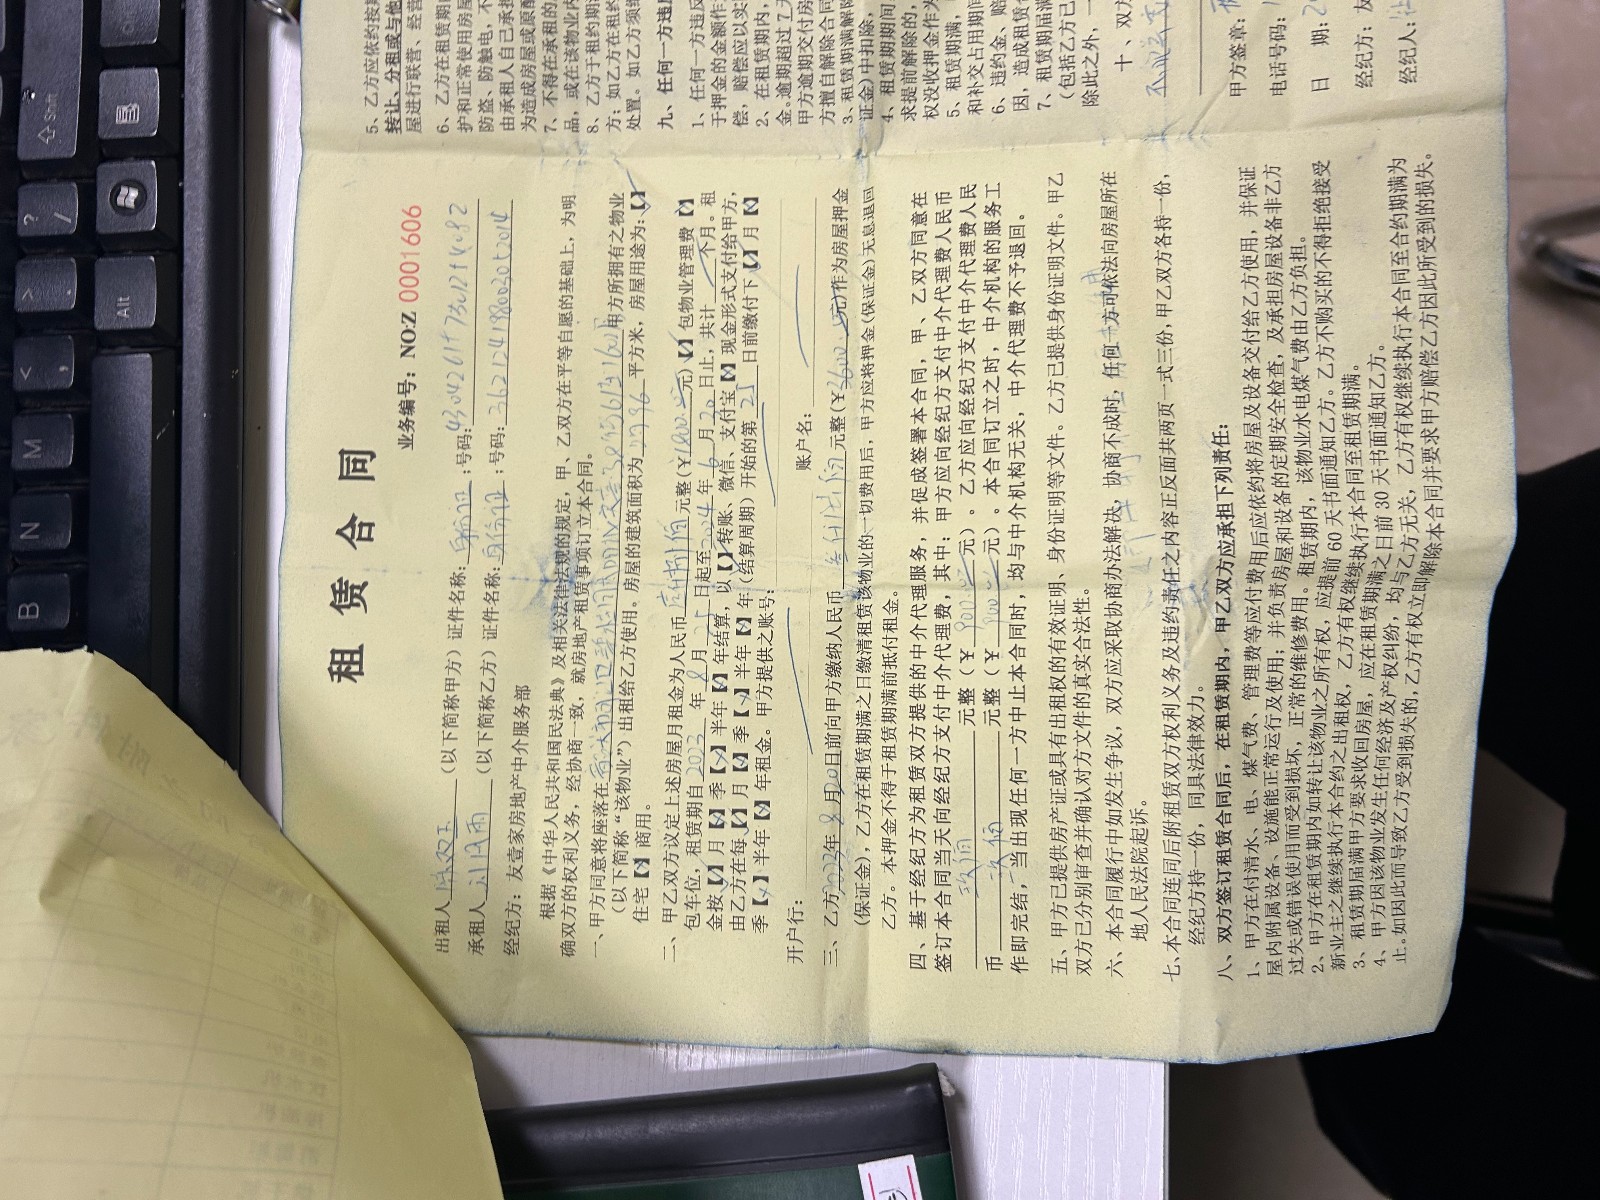 租赁合同
业务编号：NO:Z 0001606
出租人 （以下简称甲方）证件名称：身份证；号码：
承租人 （以下简称乙方）证件名称：身份证；号码：362124198003052014
经纪方：友壹家房地产中介服务部
根据《中华人民共和国民法典》及相关法律法规的规定，甲、乙双方在平等自愿的基础上，为明
确双方的权利义务，经协商一致，就房地产租赁事项订立本合同。
一、甲方同意将座落在 甲方所拥有之物业
（以下简称“该物业”）出租给乙方使用。房屋的建筑面积为 平方米，房屋用途为：【】
住宅【】商用。
二、甲乙双方议定上述房屋月租金为人民币 元整（￥1800元）【】包物业管理费【】
包车位，租赁期自2023年8月21日起至2024年6月20日止，共计 个月。租
金按【】月【】季【】半年【】年结算，以【】转账、微信、支付宝【】现金形式支付给甲方，
由乙方在每【】月【】季【】半年【】年（结算周期）开始的第21日前缴付下【】月【】
季【】半年【】年租金。甲方提供之账号：
开户行： 账户名：
三、乙方2023年8月20日前向甲方缴纳人民币 元整（￥3600元）作为房屋押金
（保证金），乙方在租赁期满之日缴清租赁该物业的一切费用后，甲方应将押金（保证金）无息退回
乙方。本押金不得于租赁期满前抵付租金。
四、基于经纪方为租赁双方提供的中介代理服务，并促成签署本合同，甲、乙双方同意在
签订本合同当天向经纪方支付中介代理费，其中：甲方应向经纪方支付中介代理费人民币
玖佰元整（￥900元）。乙方应向经纪方支付中介代理费人民
币玖佰元整（￥900元）。本合同订立之时，中介机构的服务工
作即完结，当出现任何一方中止本合同时，均与中介机构无关，中介代理费不予退回。
五、甲方已提供房产证或具有出租权的有效证明、身份证明等文件。乙方已提供身份证明文件。甲乙
双方已分别审查并确认对方文件的真实合法性。
六、本合同履行中如发生争议，双方应采取协商办法解决，协商不成时，任何一方可依法向房屋所在
地人民法院起诉。
七、本合同连同后附租赁双方权利义务及违约责任之内容正反面共两页一式三份，甲乙双方各持一份，
经纪方持一份，同具法律效力。
八、双方签订租赁合同后，在租赁期内，甲乙双方应承担下列责任：
1、甲方在付清水、电、煤气费、管理费等应付费用后应依约将房屋及设备交付给乙方使用，并保证
屋内附属设备、设施能正常运行及使用；并负责房屋和设备的定期安全检查，及承担房屋设备非乙方
过失或错误使用而受到损坏，正常的维修费用。租赁期内，该物业水电煤气费由乙方负担。
2、甲方在租赁期内如转让该物业之所有权，应提前 60 天书面通知乙方。乙方不购买的不得拒绝接受
新业主之继续执行本合约之出租权，乙方有权继续执行本合同至租赁期满。
3、租赁期届满甲方要求收回房屋，应在租赁期满之日前 30 天书面通知乙方。
4、甲方因该物业发生任何经济及产权纠纷，均与乙方无关，乙方有权继续执行本合同至合约期满为
止。如因此而导致乙方受到损失的，乙方有权立即解除本合同并要求甲方赔偿乙方因此所受到的损失。
5、乙方应依约按
转让、分租或与他
屋进行联营、经营
6、乙方在租赁期
护和正常使用房屋
防盗、防触电，不
由承租人自己承担
为造成房屋或原
7、不得在承租的
品，或在该物业内
8、乙方于租约期
方；如乙方在租约
处置。如乙方须
九、任何一方违
1、任何一方违反
于押金的金额作
偿，赔偿应以实
2、在租赁期内，
金。逾期超过 7 天
甲方逾期交付房
方擅自解除合同
3、租赁期满解除
证金）中扣除，
4、租赁期期间，
求提前解除的，
权没收押金作为
5、租赁期满，
和补交占用期间
6、违约金、赔
因，造成租赁合
7、租赁期届满
（包括乙方已
除此之外，一
十、双方
甲方签章：
电话号码：
日 期：
经纪方：友
经纪人：
Shift
Alt
B
N
M
<
,
>
.
?
/